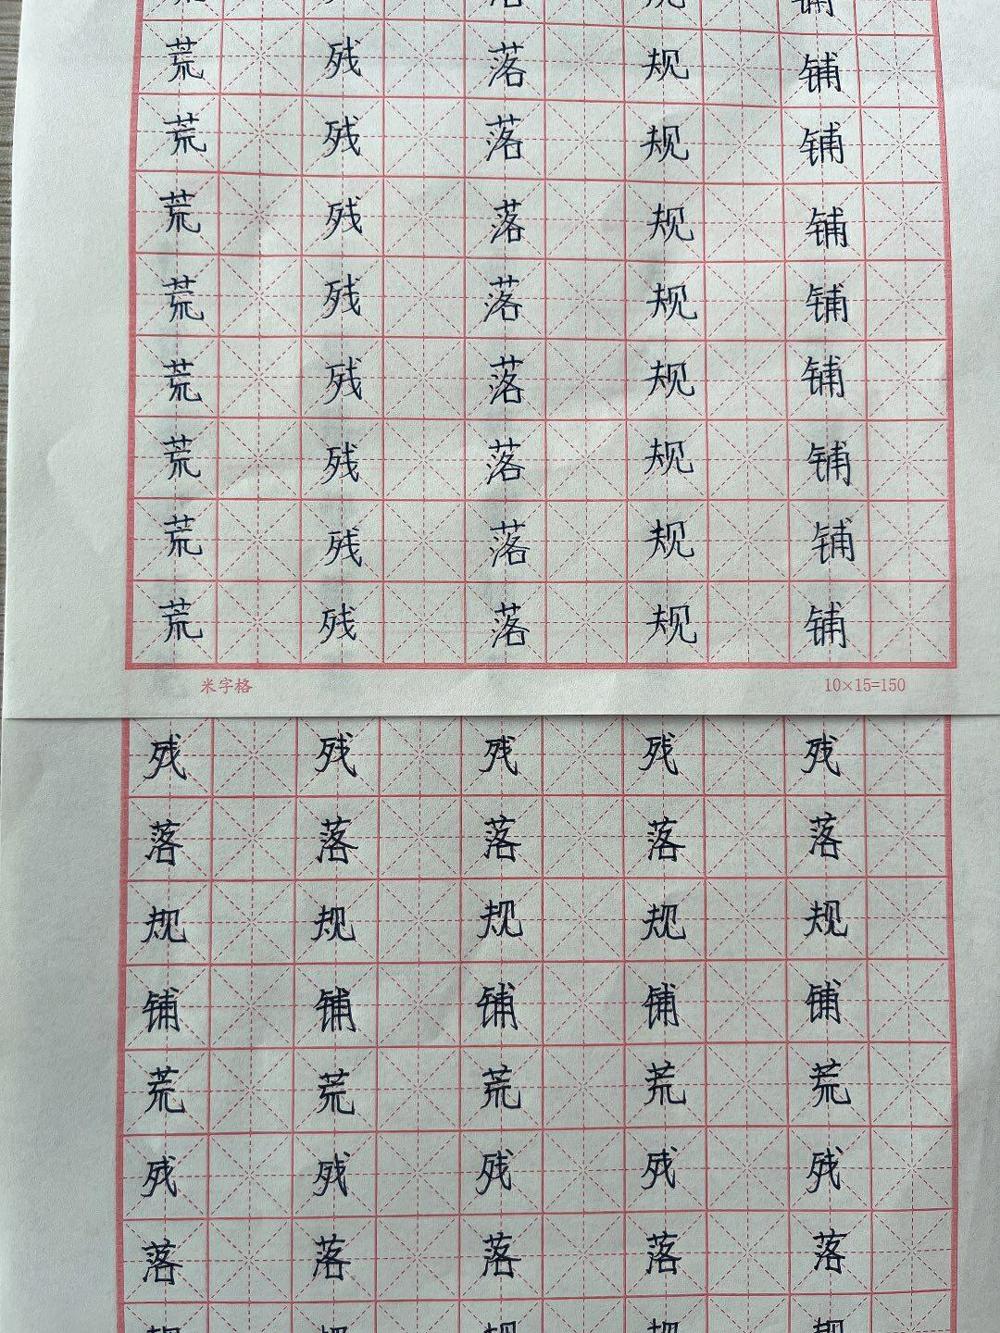 荒 残 落 规 铺
荒 残 落 规 铺
荒 残 落 规 铺
荒 残 落 规 铺
荒 残 落 规 铺
荒 残 落 规 铺
荒 残 落 规 铺
荒 残 落 规 铺
米字格 10×15=150
残 残 残 残 残
落 落 落 落 落
规 规 规 规 规
铺 铺 铺 铺 铺
荒 荒 荒 荒 荒
残 残 残 残 残
落 落 落 落 落